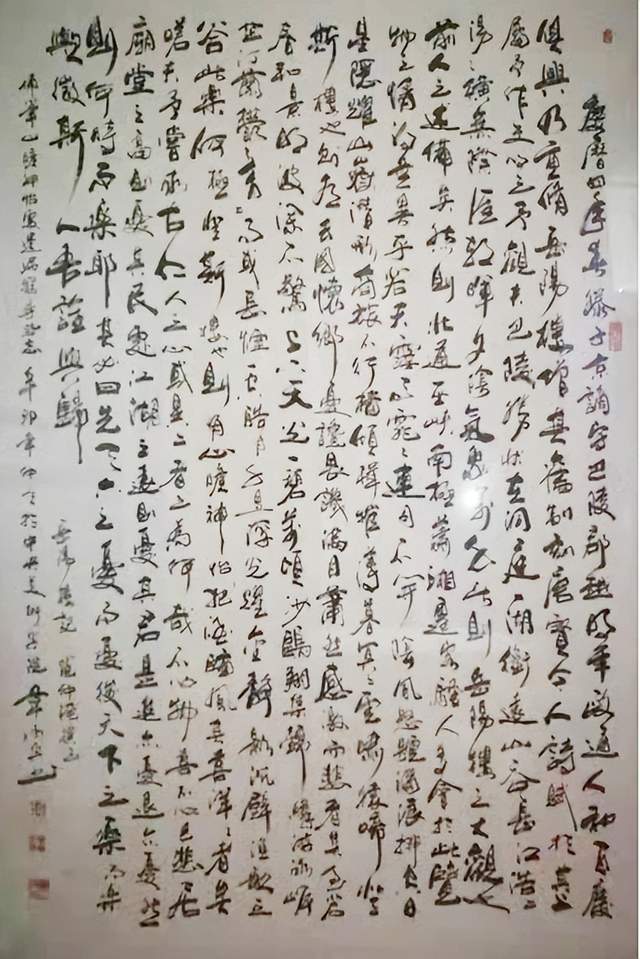 慶曆四年春滕子京謫守巴陵郡越明年政通人和百廢
俱興乃重脩岳陽樓增其舊制刻唐賢今人詩賦於其上
屬予作文以之予觀夫巴陵勝狀在洞庭一湖銜遠山吞長江浩浩
湯湯橫無際涯朝暉夕陰氣象萬千此則岳陽樓之大觀也
前人之述備矣然則北通巫峽南極瀟湘遷客騷人多會於此覽
物之情得無異乎若夫霪雨霏霏連月不開陰風怒號濁浪排空日
星隱耀山嶽潛形商旅不行檣傾楫摧薄暮冥冥虎嘯猿啼登
斯樓也則有去國懷鄉憂讒畏譏滿目蕭然感激而悲者矣至若
春和景明波瀾不驚上下天光一碧萬頃沙鷗翔集錦鱗游泳岸
芷汀蘭鬱鬱青青而或長煙一空皓月千里浮光躍金靜影沉璧漁歌互
答此樂何極登斯樓也則有心曠神怡把酒臨風其喜洋洋者矣
嗟夫予嘗求古仁人之心或異二者之為何哉不以物喜不以己悲居
廟堂之高則憂其民處江湖之遠則憂其君是進亦憂退亦憂然
則何時而樂耶其必曰先天下之憂而憂後天下之樂而樂
歟微斯人吾誰與歸
岳陽樓記 范仲淹撰文
心曠神怡 辛卯年仲夏於中央美術學院